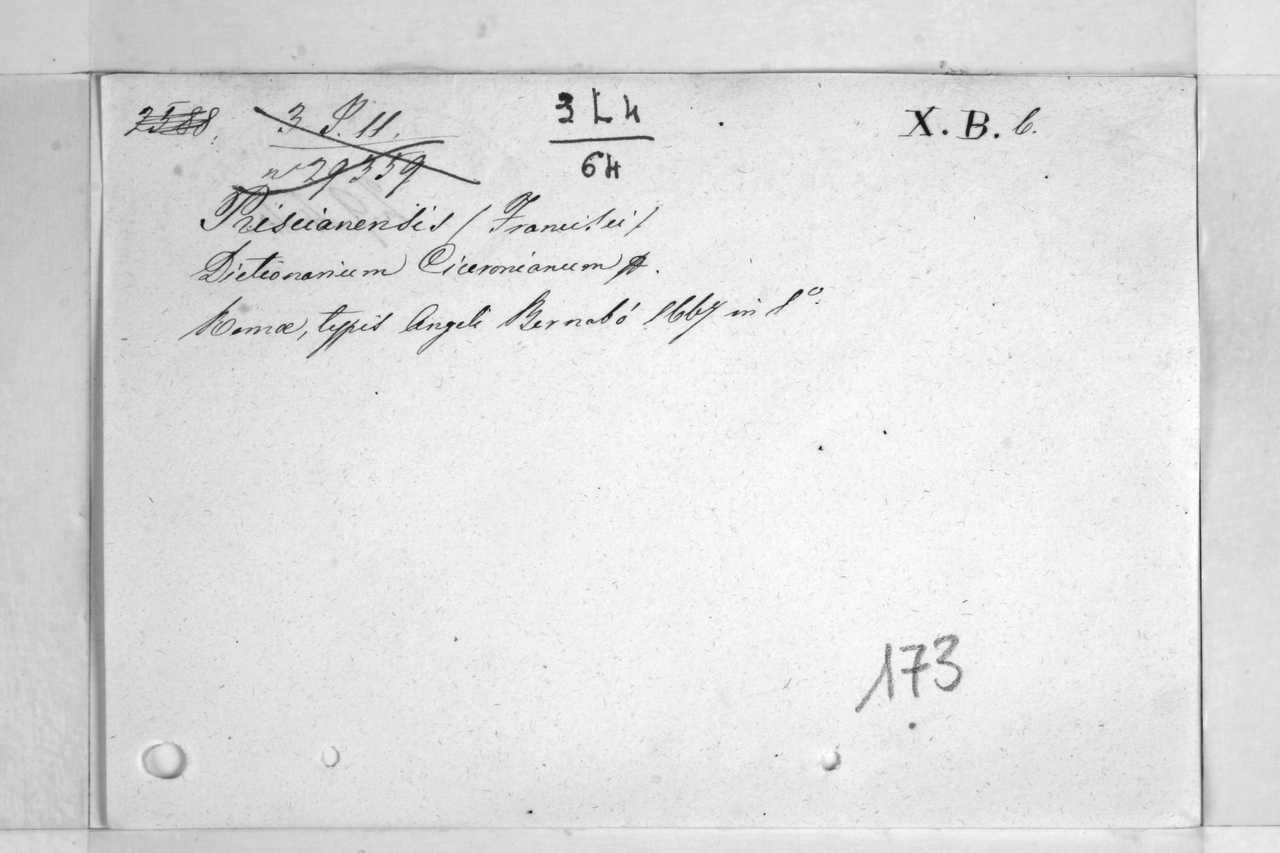 2588. 3 P. 11. 3 L 4 X. B. b.
nº 29359 64
Priscianensis (Francisci)
Dictionarium Ciceronianum
Romæ, typis Angeli Bernabó 1667 in 8º.
173